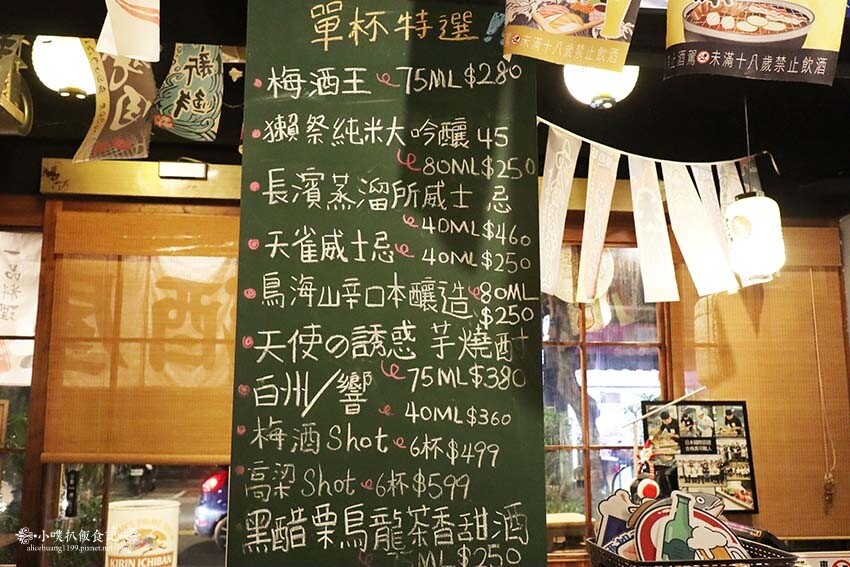 單杯特選
梅酒王 75ML $280
獺祭純米大吟釀 45
80ML $250
長濱蒸溜所威士忌
40ML $460
天雀威士忌 40ML $250
鳥海山辛口本釀造 80ML
$250
天使の誘惑 芋燒酎
75ML $380
白州/響
40ML $360
梅酒Shot 6杯 $499
高梁Shot 6杯 $599
黑醋栗烏龍茶香甜酒
75ML $250
未滿十八歲禁止飲酒
止酒駕 未滿十八歲禁止飲酒
新鮮
KIRIN
一品料理
酒
日本國際認證
KIRIN ICHIBAN
小噗趴飯食記
alicehuang1199.pixnet.net